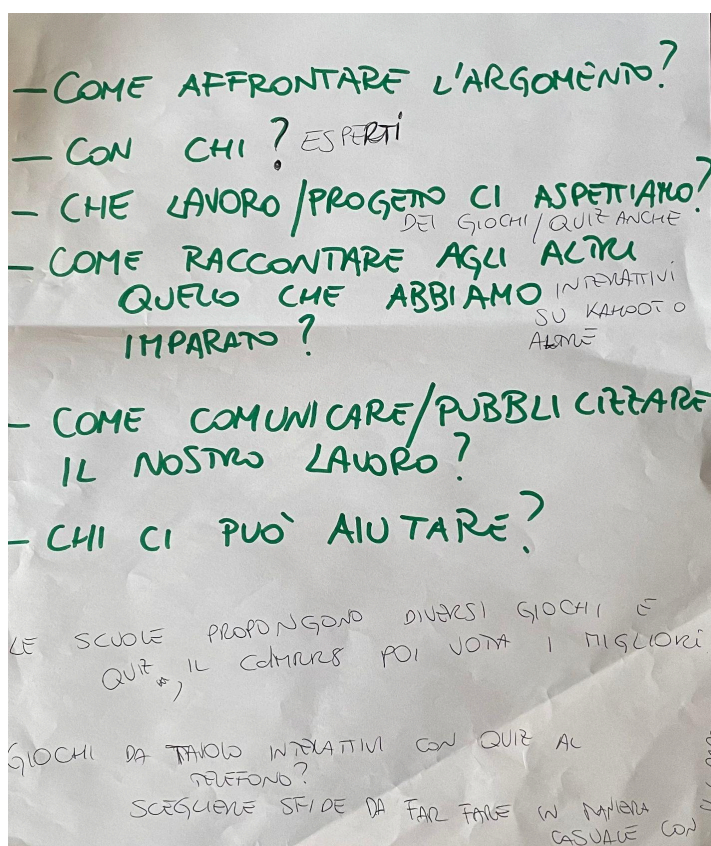 – COME AFFRONTARE L'ARGOMENTO?
– CON CHI? ESPERTI
– CHE LAVORO/PROGETTO CI ASPETTIAMO?
DEI GIOCHI/QUIZ ANCHE
– COME RACCONTARE AGLI ALTRI
QUELLO CHE ABBIAMO INTERATTIVI
SU KAHOOT O
IMPARATO? ALTRE
– COME COMUNICARE/PUBBLICIZZARE
IL NOSTRO LAVORO?
– CHI CI PUÒ AIUTARE?
LE SCUOLE PROPONGONO DIVERSI GIOCHI E
QUIZ, IL POI VOTA I MIGLIORI
GIOCHI DA TAVOLO INTERATTIVI CON QUIZ AL
TELEFONO?
SCEGLIERE SFIDE DA FAR FARE IN MANIERA
CASUALE CON